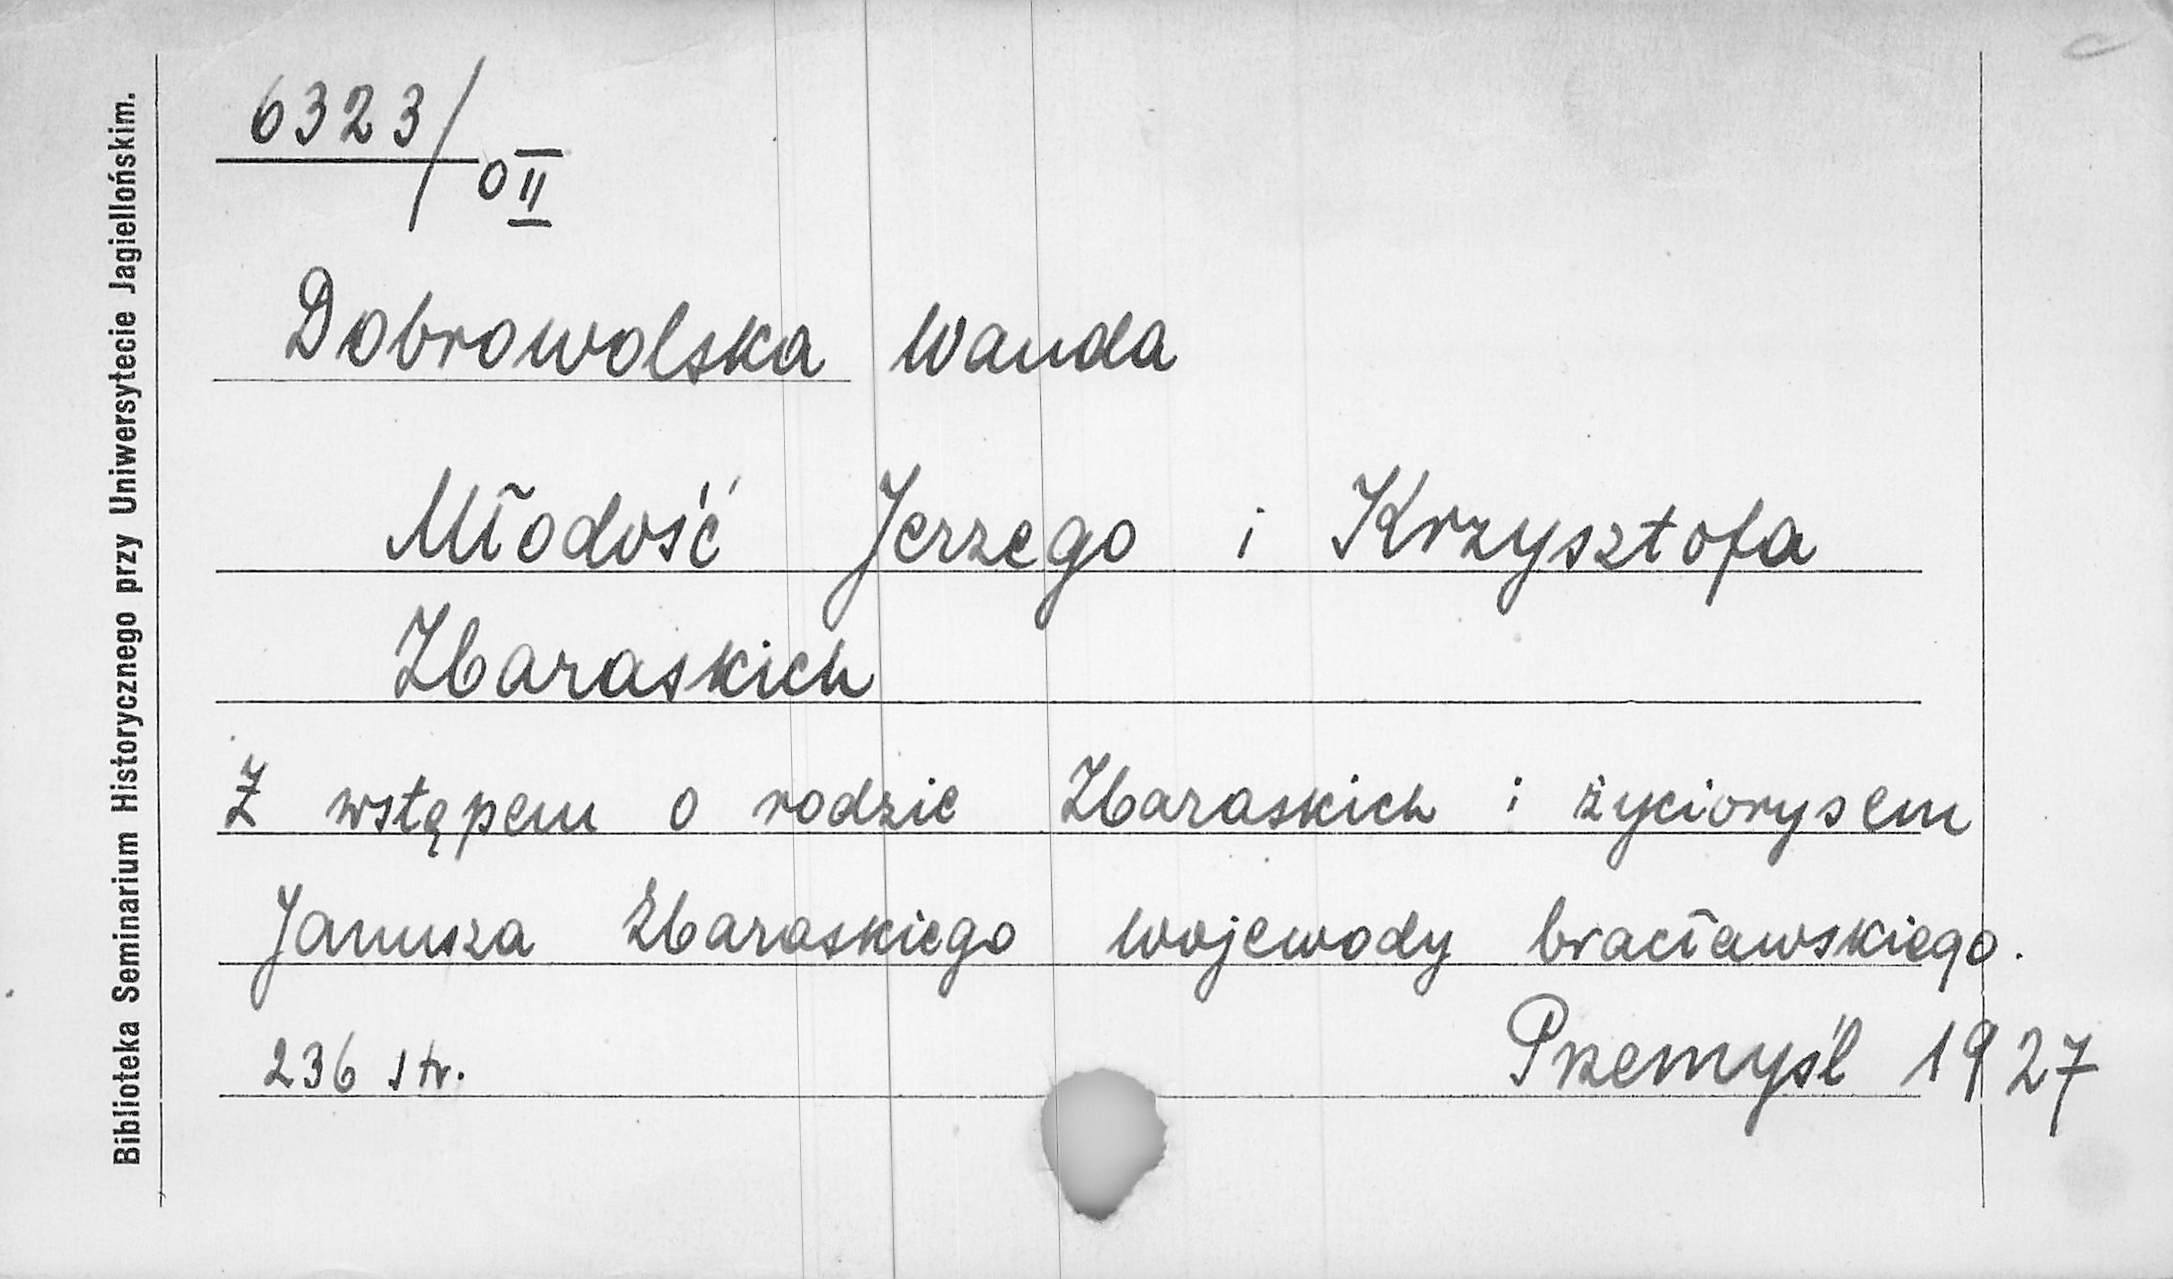 Biblioteka Seminarium Historycznego przy Uniwersytecie Jagiellońskim.
6323/0 II
Dobrowolska Wanda
Młodość Jerzego i Krzysztofa
Zbaraskich
Z wstępem o rodzie Zbaraskich i życiorysem
Janusza Zbaraskiego wojewody bracławskiego.
236 str. Przemyśl 1927